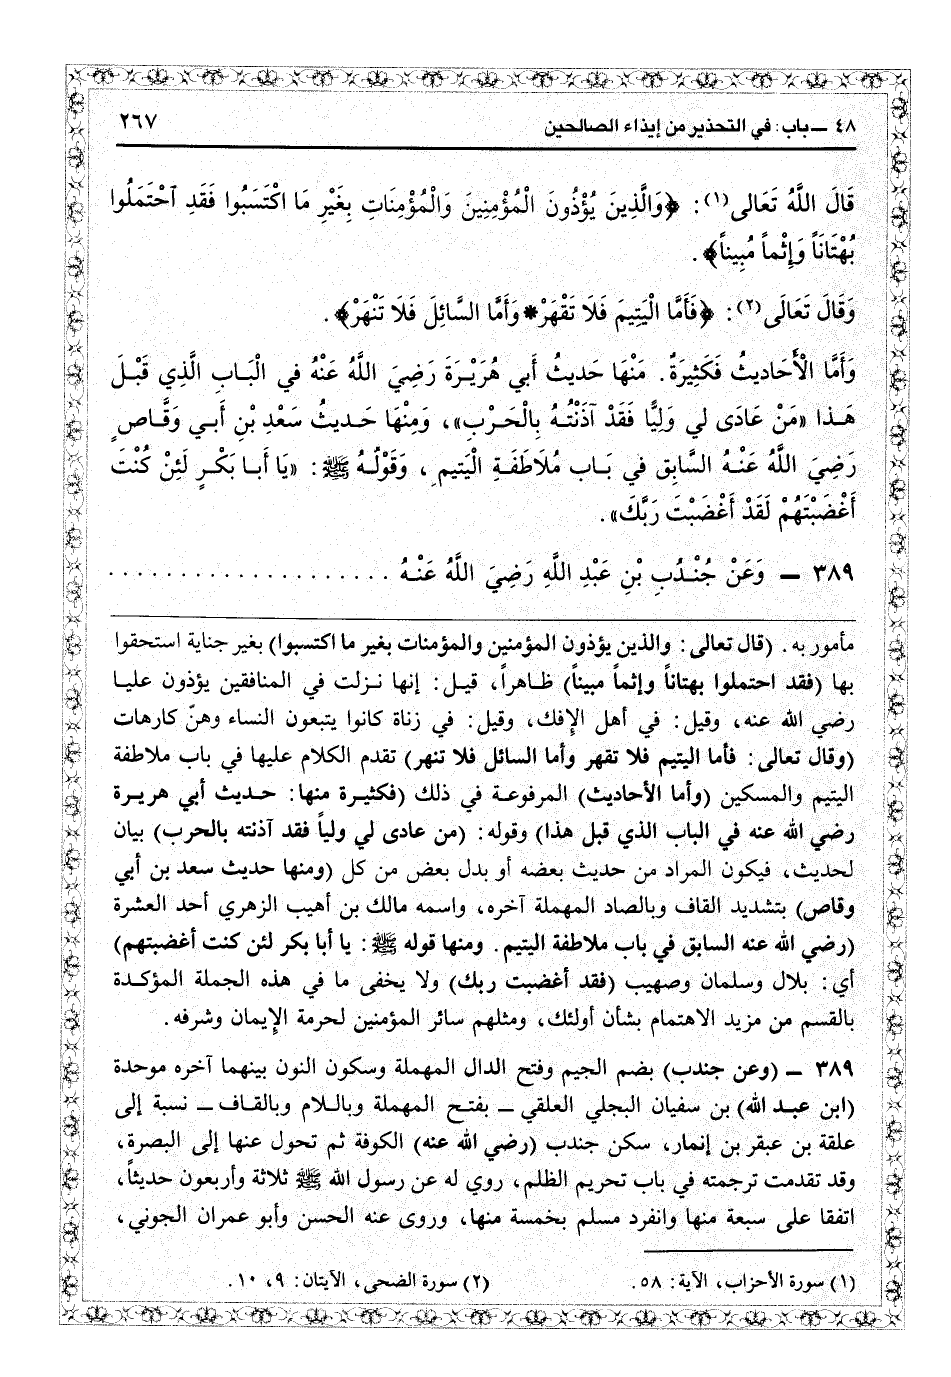 ٤٨ ــ باب: في التحذير من إيذاء الصالحين ٢٦٧
قَالَ اللَّهُ تَعَالى(١): ﴿وَالَّذِينَ يُؤْذُونَ الْمُؤْمِنِينَ وَالْمُؤْمِنَاتِ بِغَيْرِ مَا اكْتَسَبُوا فَقَدِ ٱحْتَمَلُوا
بُهْتَانَاً وَإِثْماً مُبِيناً﴾.
وَقَالَ تَعَالَى(٢): ﴿فَأَمَّا الْيَتِيمَ فَلَا تَقْهَرْ* وَأَمَّا السَّائِلَ فَلَا تَنْهَرْ﴾.
وَأَمَّا الْأَحَادِيثُ فَكَثِيرَةٌ. مَنْهَا حَدِيثُ أَبي هُرَيْرَةَ رَضِيَ اللَّهُ عَنْهُ في الْبَابِ الَّذِي قَبْلَ
هَذا «مَنْ عَادَى لي وَلِيًّا فَقَدْ آذَنْتُهُ بِالْحَرْبِ»، وَمِنْهَا حَدِيثُ سَعْدِ بْنِ أَبي وَقَّاصٍ
رَضِيَ اللَّهُ عَنْهُ السَّابِق في بَاب مُلَاطَفَةِ الْيَتِيمِ، وَقَوْلُهُ ﷺ: «يَا أَبا بَكْرٍ لَئِنْ كُنْتَ
أَغْضَبْتَهُمْ لَقَدْ أَغْضَبْتَ رَبَّكَ».
٣٨٩ ــ وَعَنْ جُنْدُبِ بْنِ عَبْدِ اللَّهِ رَضِيَ اللَّهُ عَنْهُ . . . . . . . . . . . . . . . . . . . .
مأمور به. (قال تعالى: والذين يؤذون المؤمنين والمؤمنات بغير ما اكتسبوا) بغير جناية استحقوا
بها (فقد احتملوا بهتاناً وإثماً مبيناً) ظاهراً، قيل: إنها نزلت في المنافقين يؤذون عليا
رضي الله عنه، وقيل: في أهل الإفك، وقيل: في زناة كانوا يتبعون النساء وهنّ كارهات
(وقال تعالى: فأما اليتيم فلا تقهر وأما السائل فلا تنهر) تقدم الكلام عليها في باب ملاطفة
اليتيم والمسكين (وأما الأحاديث) المرفوعة في ذلك (فكثيرة منها: حديث أبي هريرة
رضي الله عنه في الباب الذي قبل هذا) وقوله: (من عادى لي ولياً فقد آذنته بالحرب) بيان
لحديث، فيكون المراد من حديث بعضه أو بدل بعض من كل (ومنها حديث سعد بن أبي
وقاص) بتشديد القاف وبالصاد المهملة آخره، واسمه مالك بن أهيب الزهري أحد العشرة
(رضي الله عنه السابق في باب ملاطفة اليتيم. ومنها قوله ﷺ: يا أبا بكر لئن كنت أغضبتهم)
أي: بلال وسلمان وصهيب (فقد أغضبت ربك) ولا يخفى ما في هذه الجملة المؤكدة
بالقسم من مزيد الاهتمام بشأن أولئك، ومثلهم سائر المؤمنين لحرمة الإيمان وشرفه.
٣٨٩ ــ (وعن جندب) بضم الجيم وفتح الدال المهملة وسكون النون بينهما آخره موحدة
(ابن عبد الله) بن سفيان البجلي العلقي ــ بفتح المهملة وباللام وبالقاف ــ نسبة إلى
علقة بن عبقر بن إنمار، سكن جندب (رضي الله عنه) الكوفة ثم تحول عنها إلى البصرة،
وقد تقدمت ترجمته في باب تحريم الظلم، روي له عن رسول الله ﷺ ثلاثة وأربعون حديثاً،
اتفقا على سبعة منها وانفرد مسلم بخمسة منها، وروى عنه الحسن وأبو عمران الجوني،
(١) سورة الأحزاب، الآية: ٥٨. (٢) سورة الضحى، الآيتان: ٩، ١٠.